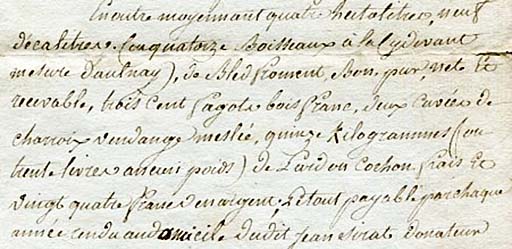 En outre moyennant quatre hectolitres, neuf
décalitres (ou quatorze Boisseaux à la cydevant
mesure D'aulnay), de Bled froment, Bon, pur, net et
recevable, trois cent fagots bois franc, deux cuvées de
charroix vendange meslée, quinze Kilogrammes (ou
trente livres ancien poids) de Lard ou Cochon frais et
vingt quatre francs en argent, Le tout payable par chaque
année rendu au domicile dudit jean Strat Donateur